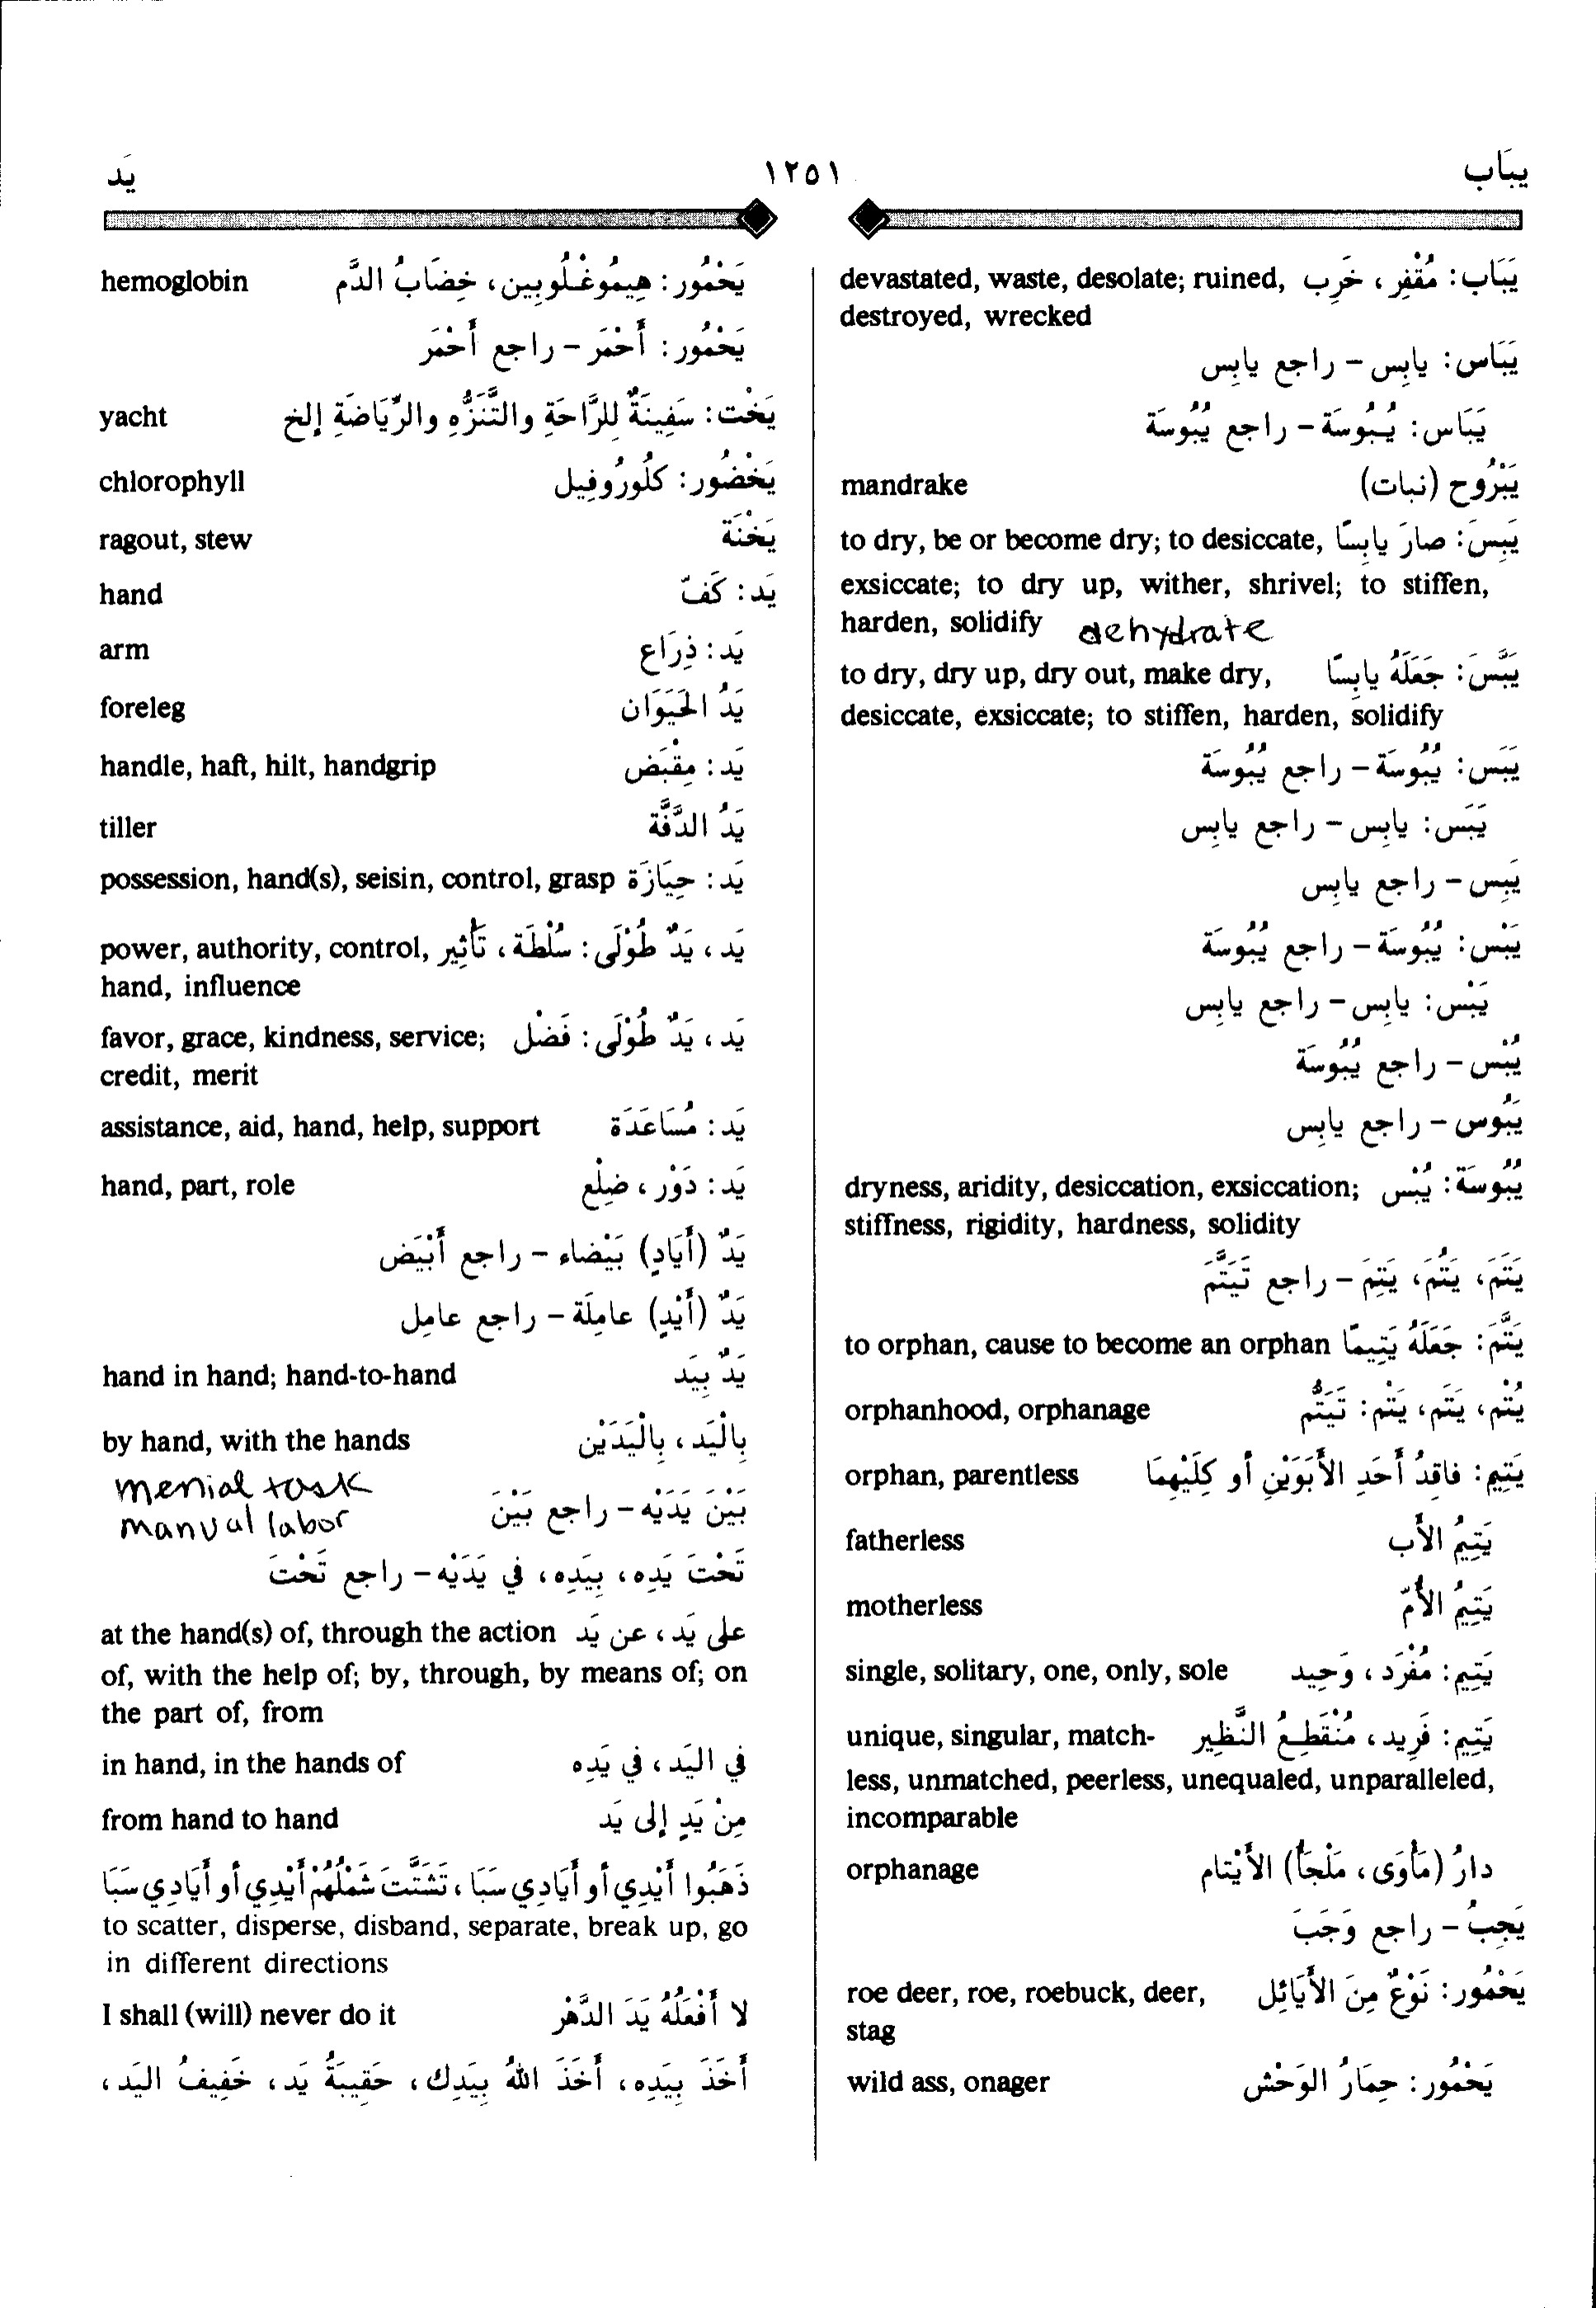 يبَاب
١٢٥١
يَد
يَبَاب: مُقْفِر، خَرِب devastated, waste, desolate; ruined,
destroyed, wrecked
يَبَاس: يابِس – راجع يابِس
يَبَاس: يُبُوسَة – راجع يُبُوسَة
يَبْرُوح (نبات) mandrake
يَبِسَ: صارَ يابِسًا to dry, be or become dry; to desiccate,
exsiccate; to dry up, wither, shrivel; to stiffen,
harden, solidify dehydrate
يَبَّسَ: جَعَلَهُ يابِسًا to dry, dry up, dry out, make dry,
desiccate, exsiccate; to stiffen, harden, solidify
يَبَس: يُبُوسَة – راجع يُبُوسَة
يَبَس: يابِس – راجع يابِس
يَبِس – راجع يابِس
يَبْس: يُبُوسَة – راجع يُبُوسَة
يَبْس: يابِس – راجع يابِس
يُبْس – راجع يُبُوسَة
يَبُوس – راجع يابِس
يُبُوسَة: يُبْس dryness, aridity, desiccation, exsiccation;
stiffness, rigidity, hardness, solidity
يَتَمَ، يَتُمَ، يَتِمَ – راجع تَيَتَّمَ
يَتَّمَ: جَعَلَهُ يَتِيمًا to orphan, cause to become an orphan
يُتْم، يَتَم، يَتْم: تَيَتُّم orphanhood, orphanage
يَتِيم: فاقِدُ أَحَدِ الأَبَوَيْنِ أو كِلَيْهِمَا orphan, parentless
يَتِيمُ الأَب fatherless
يَتِيمُ الأُمّ motherless
يَتِيم: مُفْرَد، وَحِيد single, solitary, one, only, sole
يَتِيم: فَرِيد، مُنْقَطِعُ النَّظِير unique, singular, match-
less, unmatched, peerless, unequaled, unparalleled,
incomparable
دارُ (مَأْوَى، مَلْجَأُ) الأَيْتام orphanage
يَجِبُ – راجع وَجَبَ
يَحْمُور: نَوْعٌ مِنَ الأَيَائِل roe deer, roe, roebuck, deer,
stag
يَحْمُور: حِمَارُ الوَحْش wild ass, onager
يَحْمُور: هِيمُوغْلُوبِين، خِضَابُ الدَّم hemoglobin
يَحْمُور: أَحْمَر – راجع أَحْمَر
يَخْت: سَفِينَةٌ لِلرَّاحَةِ والتَّنَزُّهِ والرِّيَاضَةِ إلخ yacht
يَخْضُور: كلُورُوفِيل chlorophyll
يَخْنَة ragout, stew
يَد: كَفّ hand
يَد: ذِرَاع arm
يَدُ الحَيَوَان foreleg
يَد: مِقْبَض handle, haft, hilt, handgrip
يَدُ الدَّفَّة tiller
يَد: حِيَازَة possession, hand(s), seisin, control, grasp
يَد، يَدٌ طُوْلَى: سُلْطَة، تَأْثِير power, authority, control,
hand, influence
يَد، يَدٌ طُوْلَى: فَضْل favor, grace, kindness, service;
credit, merit
يَد: مُسَاعَدَة assistance, aid, hand, help, support
يَد: دَوْر، ضِلْع hand, part, role
يَدٌ (أَيَادٍ) بَيْضاء – راجع أَبْيَض
يَدٌ (أَيْدٍ) عامِلَة – راجع عامِل
يَدٌ بِيَد hand in hand; hand-to-hand
بِالْيَد، بِالْيَدَيْن by hand, with the hands
menial task
بَيْنَ يَدَيْه – راجع بَيْنَ manual labor
تَحْتَ يَدِه، بِيَدِه، في يَدَيْه – راجع تَحْتَ
على يَد، عن يَد at the hand(s) of, through the action
of, with the help of; by, through, by means of; on
the part of, from
في اليَد، في يَدِه in hand, in the hands of
مِنْ يَدٍ إلى يَد from hand to hand
ذَهَبُوا أَيْدِي أو أَيَادِي سَبَا، تَشَتَّتَ شَمْلُهُمْ أَيْدِي أو أَيَادِي سَبَا
to scatter, disperse, disband, separate, break up, go
in different directions
لا أَفْعَلُهُ يَدَ الدَّهْر I shall (will) never do it
أَخَذَ بِيَدِه، أَخَذَ اللهُ بِيَدِك، حَقِيبَةُ يَد، خَفِيفُ اليَد،